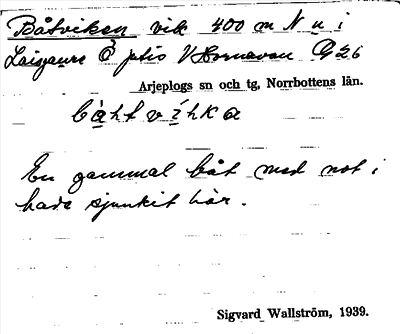 Båtviken vik 400 m N u i
Laisjaure Ö ptio V Hornavan G 26
Arjeplogs sn och tg, Norrbottens län.
bàht vìhka
En gammal båt med not i
hade sjunkit här.
Sigvard Wallström, 1939.